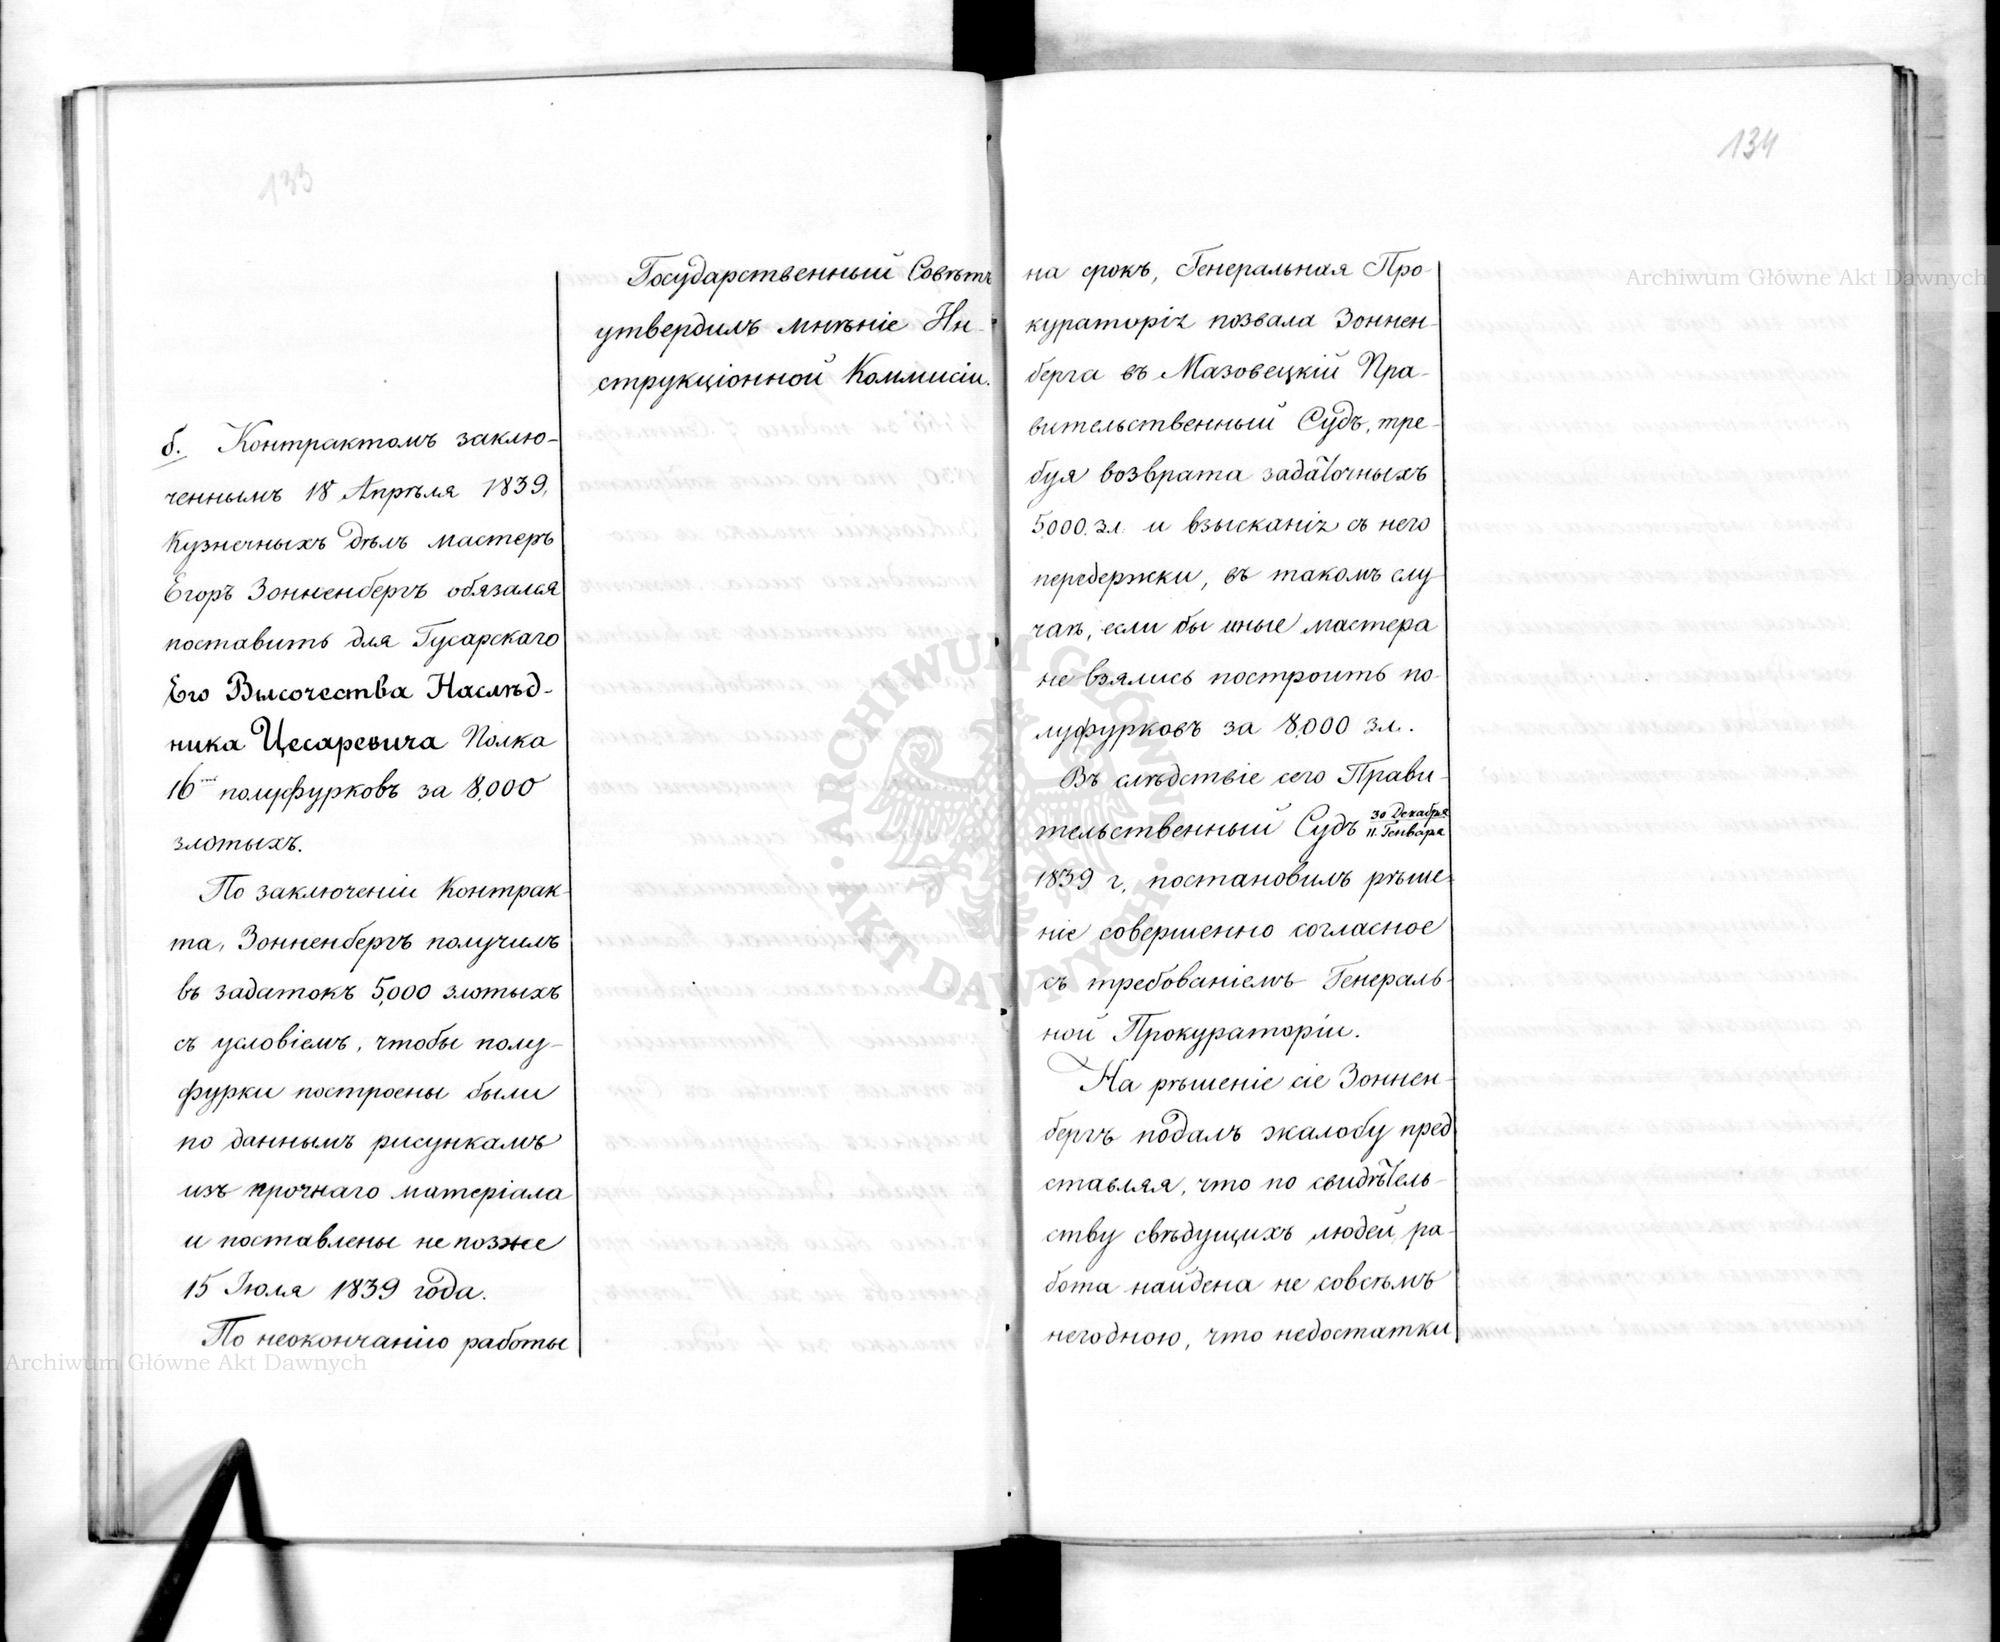 133
Государственный Совѣтъ
утвердилъ мнѣніе Ин-
струкціонной Коммисіи.
б. Контрактомъ заклю-
ченнымъ 18 Апрѣля 1839,
Кузнечныхъ дѣлъ мастеръ
Егоръ Зонненбергъ обязался
поставить для Гусарскаго
Его Высочества Наслѣд-
ника Цесаревича Полка
16 полуфурковъ за 8,000
злотыхъ.
По заключеніи Контрак-
та, Зонненбергъ получилъ
въ задатокъ 5,000 злотыхъ
съ условіемъ, чтобы полу-
фурки построены были
по даннымъ рисункамъ
изъ прочнаго матеріала
и поставлены не позже
15 Іюля 1839 года.
По неокончанію работы
134
на срокъ, Генеральная Про-
кураторія позвала Зоннен-
берга въ Мазовецкій Пра-
вительственный Судъ, тре-
буя возврата задаточныхъ
5,000 зл. и взысканія съ него
передержки, въ такомъ слу-
чаѣ, если бы иные мастера
не взялись построить по-
луфурковъ за 8,000 зл.
Въ слѣдствіе сего Прави-
тельственный Судъ 30 Декабря
11 Генваря
1839 г. постановилъ рѣше-
ніе совершенно согласное
съ требованіемъ Генераль-
ной Прокураторіи.
На рѣшеніе сіе Зоннен-
бергъ подалъ жалобу пред
ставляя, что по свидѣтель-
ству свѣдущихъ людей ра-
бота найдена не совсѣмъ
негодною, что недостатки
Archiwum Główne Akt Dawnych
Archiwum Główne Akt Dawnych
ARCHIWUM GŁÓWNE
AKT DAWNYCH